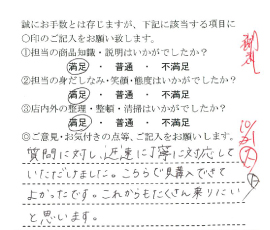 誠にお手数とは存じますが、下記に該当する項目に
○印のご記入をお願い致します。
①担当の商品知識・説明はいかがでしたか?
満足 ・ 普通 ・ 不満足
②担当の身だしなみ・笑顔・態度はいかがでしたか?
満足 ・ 普通 ・ 不満足
③店内外の整理・整頓・清掃はいかがでしたか?
満足 ・ 普通 ・ 不満足
◎ご意見・お気付きの点等、ご記入をお願いします。
質問に対し、迅速に丁寧に対応して
いただけました。こちらで購入できて
よかったです。これからもたくさん乗りたい
と思います。
10/21